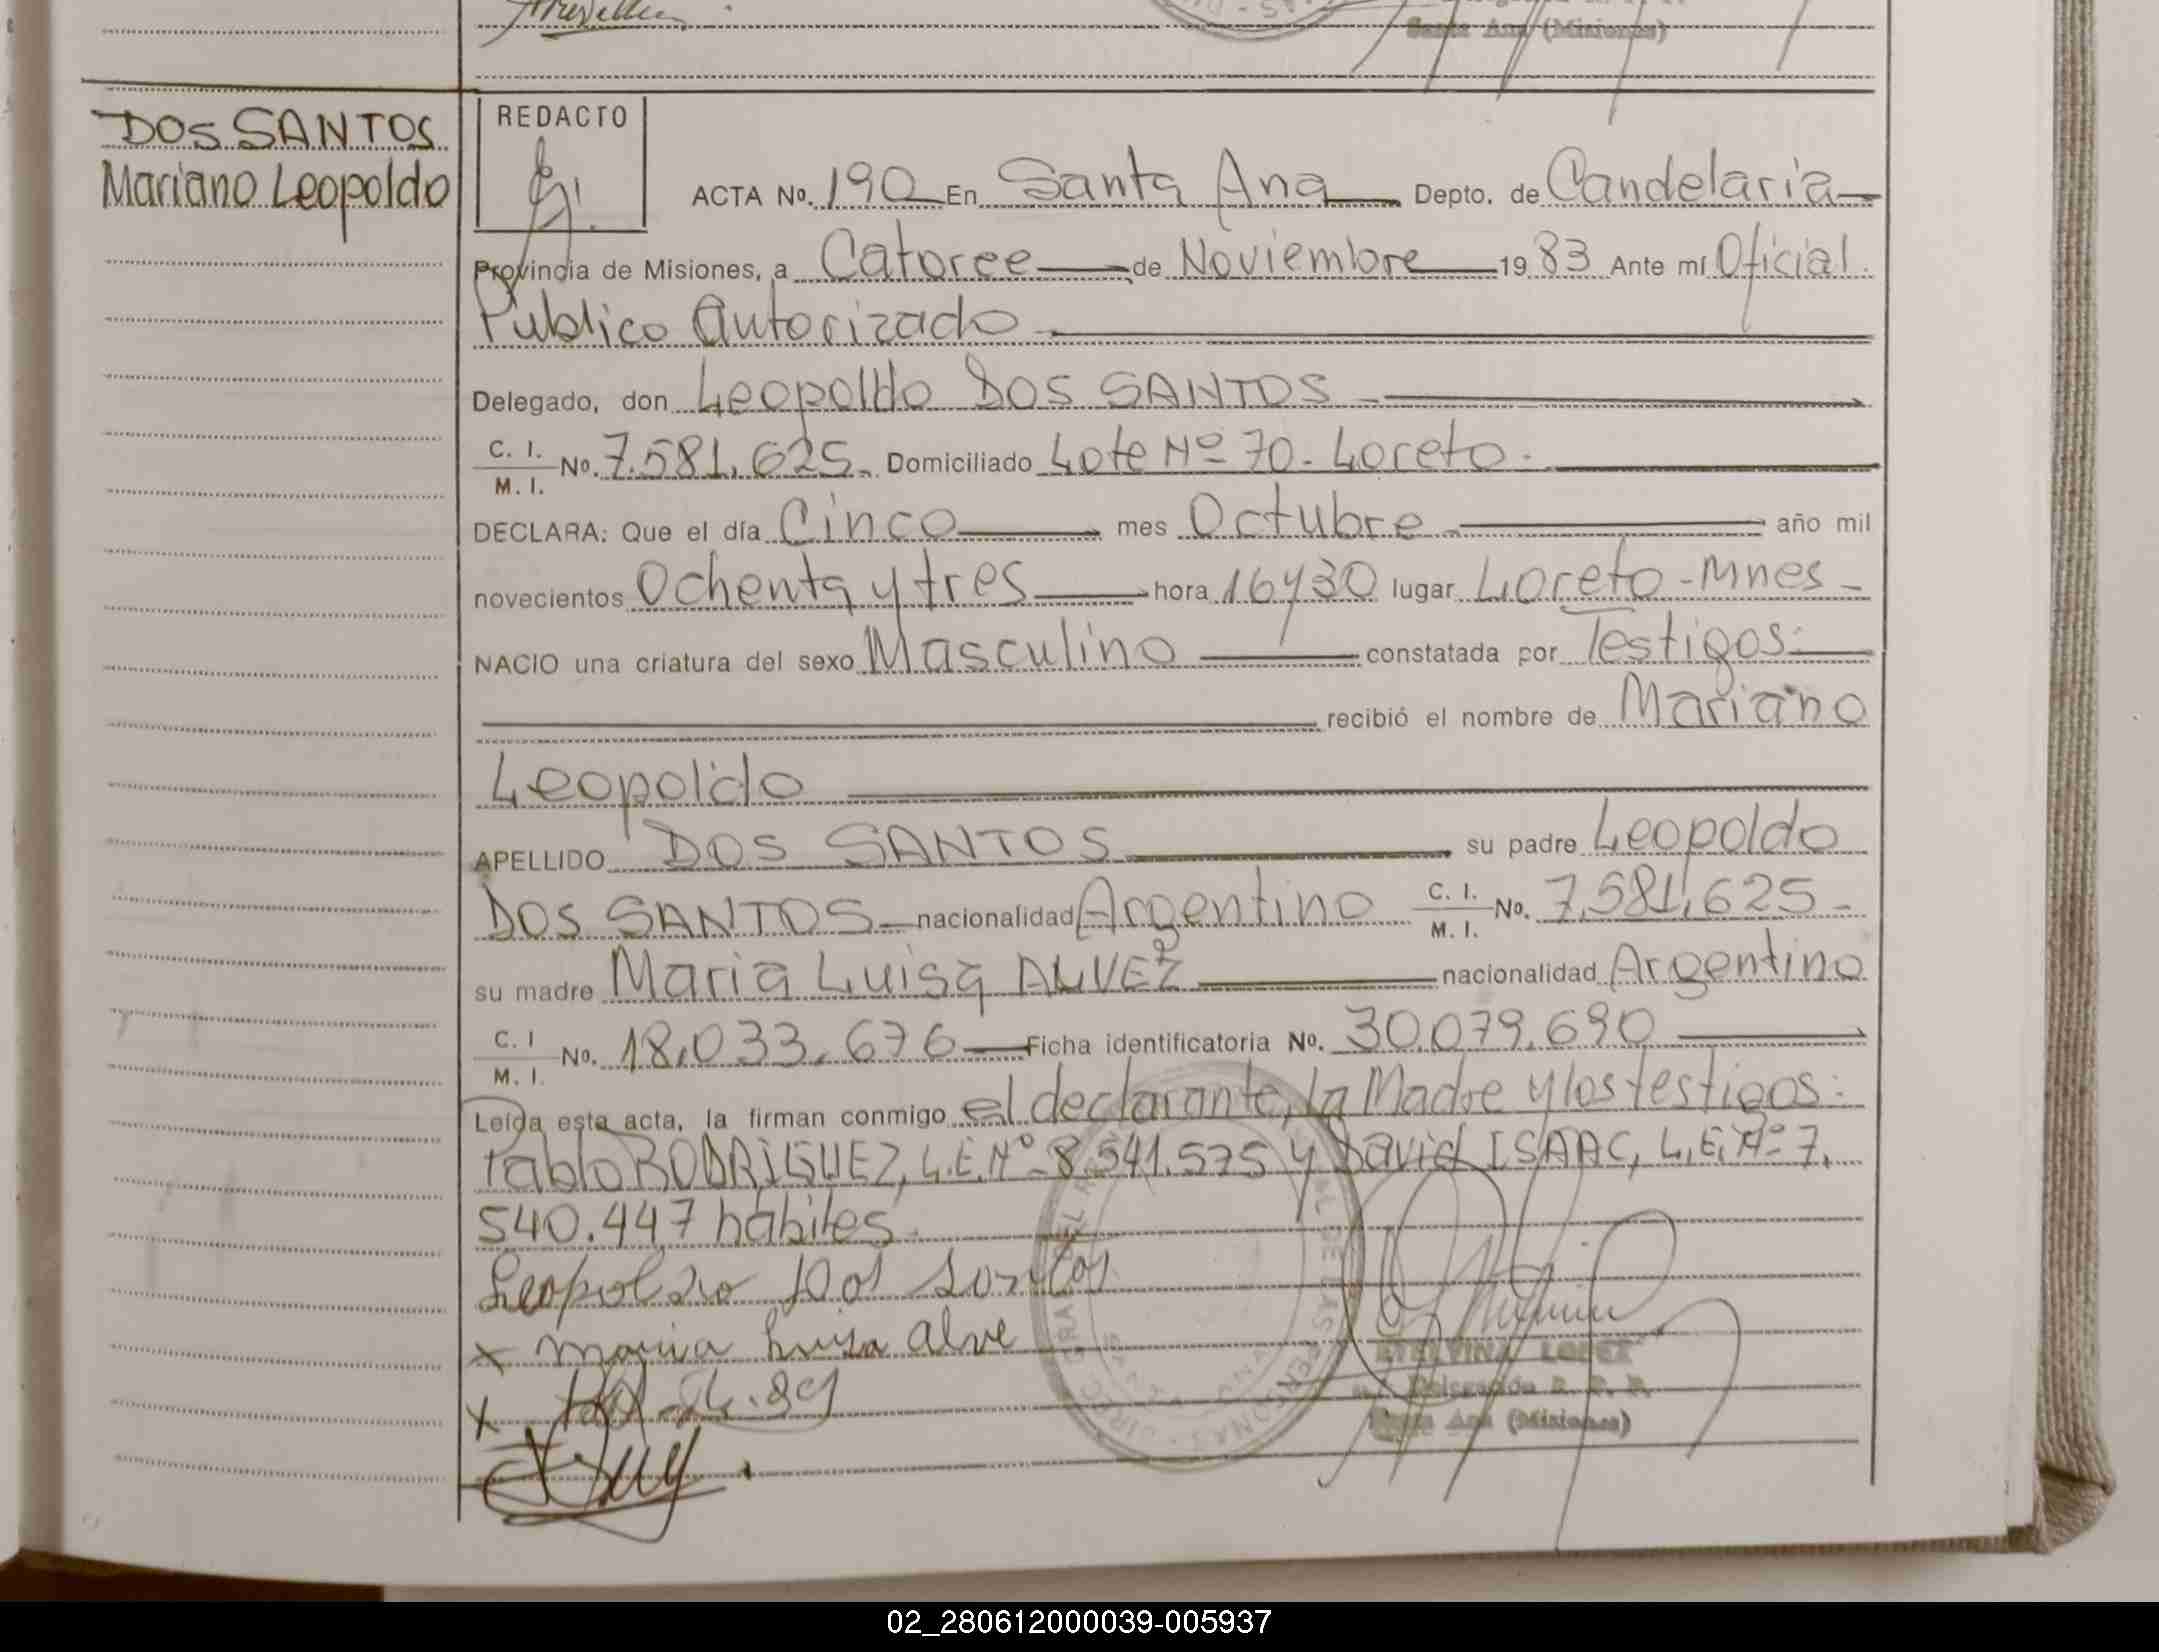 Santa Ana (Misiones)
DOS SANTOS
Mariano Leopoldo
REDACTO
ACTA No. 190 En Santa Ana Depto. de Candelaria
Provincia de Misiones, a Catorce de Noviembre 1983 Ante mí Oficial
Publico Autorizado
Delegado, don Leopoldo DOS SANTOS
C. I. / M. I. No. 7.581.625. Domiciliado Lote Nº 70 - Loreto.
DECLARA: Que el día Cinco mes Octubre año mil
novecientos Ochenta y tres hora 16y30 lugar Loreto - Mnes -
NACIO una criatura del sexo Masculino constatada por Testigos:
recibió el nombre de Mariano
Leopoldo
APELLIDO DOS SANTOS su padre Leopoldo
DOS SANTOS nacionalidad Argentino C. I. / M. I. No. 7.581.625 -
su madre Maria Luisa ALVEZ nacionalidad Argentino
C. I / M. I. No. 18.033.676 Ficha identificatoria No. 30.079.690
Leída esta acta, la firman conmigo el declarante, la Madre y los testigos:
Pablo RODRIGUEZ, L.E.Nº 8.541.575 y David ISAAC, L.E.Nº 7.
540.447 habiles.
Leopoldo Dos Santos
x maria luisa alve
x
ETELVINA LOPEZ
Delegación R. P. P.
Santa Ana (Misiones)
02_280612000039-005937